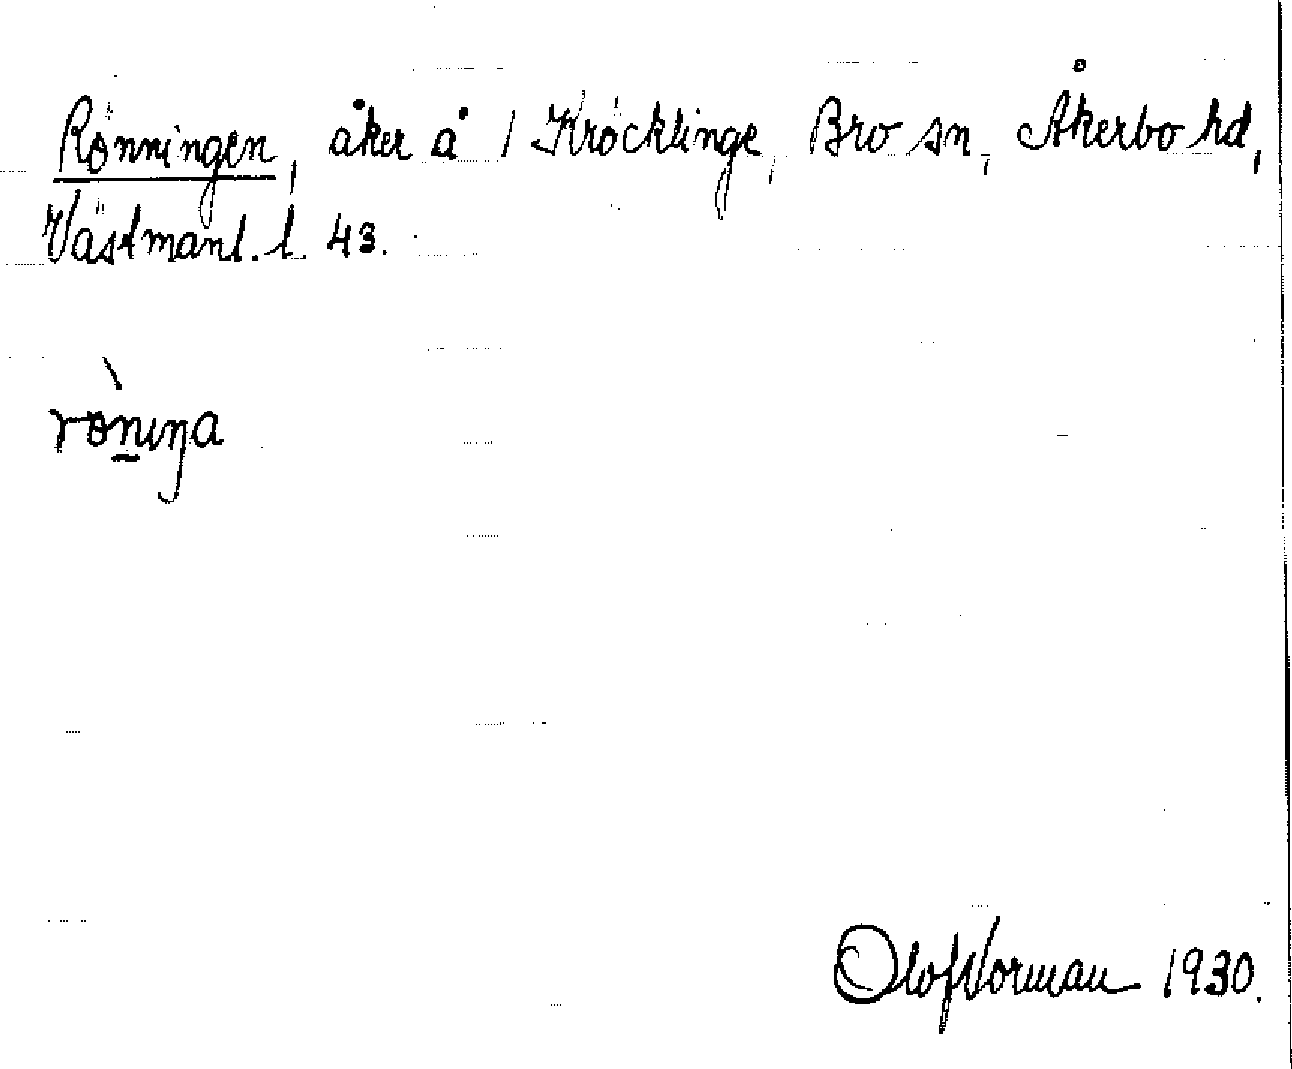 Rönningen, åker å 1 Kröcklinge, Bro sn, Åkerbo hd,
Västmanl. l. 43.
rö̀n̲ıŋa
Olof Norman 1930.